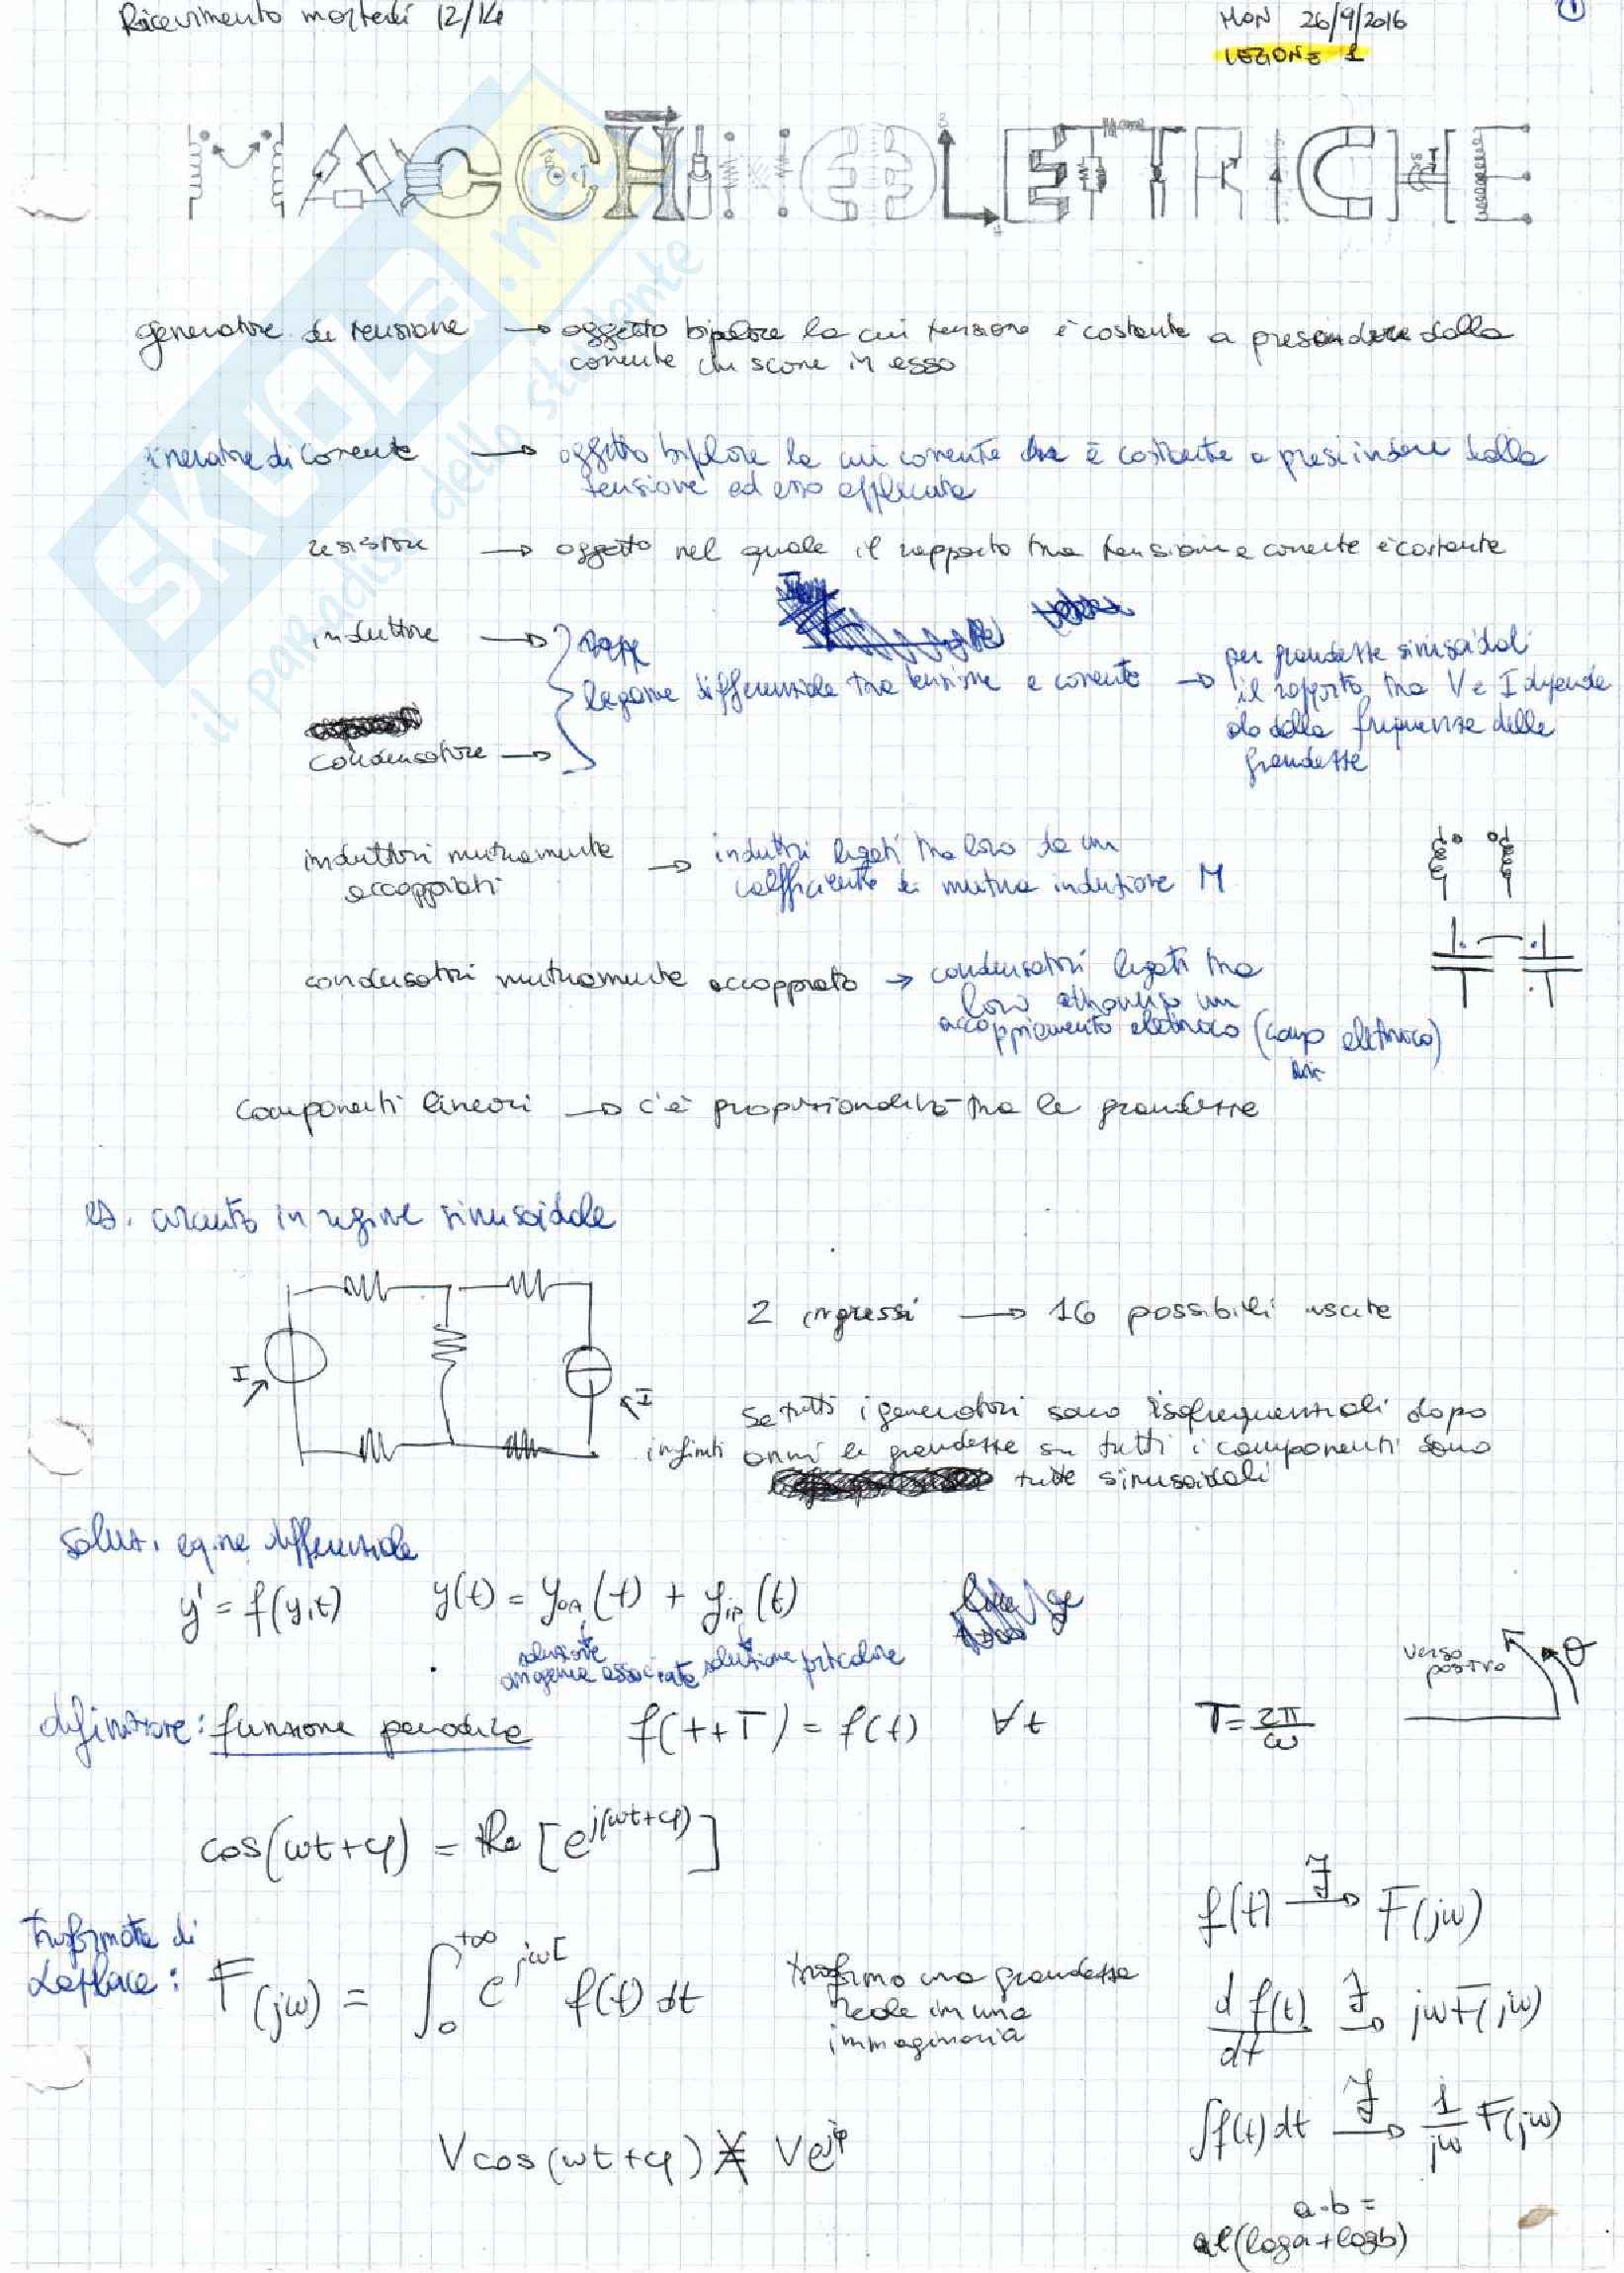 Ricevimento martedì 12/14
MON 26/9/2016
1
LEZIONE 1
MACCHINE ELETTRICHE
generatore di tensione → oggetto bipolare la cui tensione è costante a prescindere dalla
corrente che scorre in esso
generatore di corrente → oggetto bipolare la cui corrente è costante a prescindere dalla
tensione ad esso applicata
resistore → oggetto nel quale il rapporto tra tensione e corrente è costante
induttore →
legame differenziale tra tensione e corrente → per grandezze sinusoidali
il rapporto tra V e I dipende
dalla frequenza delle
grandezze
condensatore →
induttori mutuamente accoppiati → induttori legati tra loro da un
coefficiente di mutua induzione M
condensatori mutuamente accoppiato → condensatori legati tra
loro attraverso un
accoppiamento elettrico (campo elettrico)
componenti lineari → c'è proporzionalità tra le grandezze
es. circuito in regime sinusoidale
2 ingressi → 16 possibili uscite
I
I
Se tutti i generatori sono isofrequenziali dopo
infiniti anni le grandezze su tutti i componenti sono
tutte sinusoidali
soluz. eq.ne differenziale
y' = f(y,t) y(t) = yoa(t) + yip(t)
soluzione
omogenea associata soluzione particolare
verso
positivo
θ
definizione: funzione periodica f(t+T) = f(t) ∀t T = 2π/ω
cos(ωt+φ) = Re [e^j(ωt+φ)]
f(t) →ℱ F(jω)
trasformata di
Laplace: F(jω) = ∫₀^+∞ e^jωt f(t) dt
trasformo una grandezza
reale in una
immaginaria
d f(t)/dt →ℱ jωF(jω)
∫f(t)dt →ℱ 1/jω F(jω)
V cos(ωt+φ) ≠ Ve^jφ
a·b =
(loga+logb)
SKUOLA.net
il paradiso dello studente